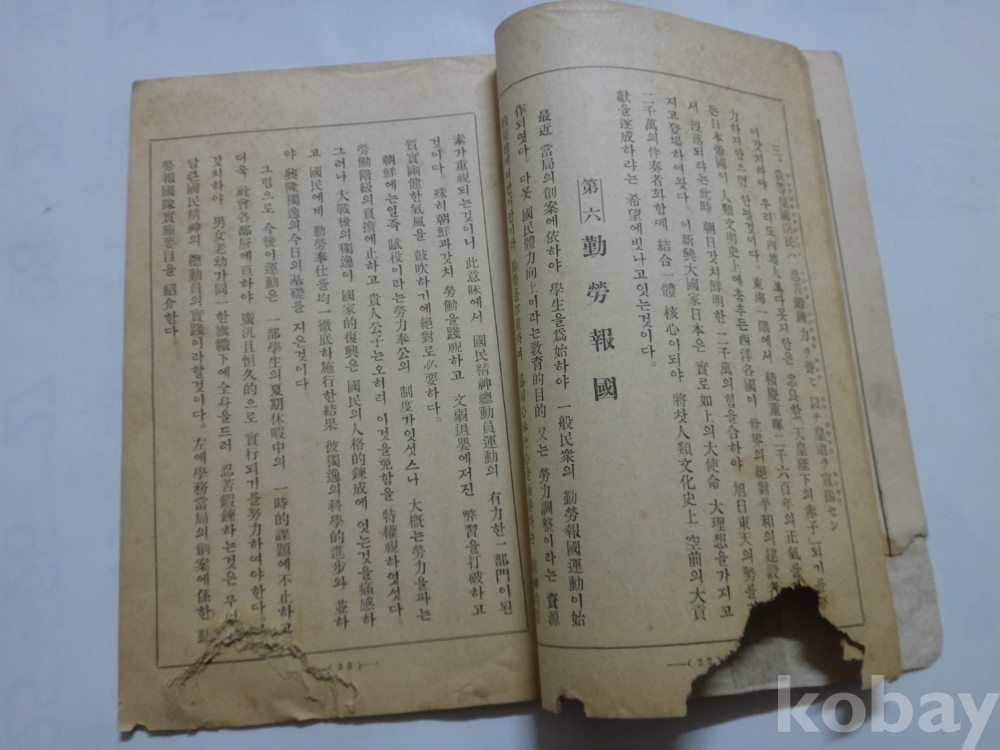 三、我等皇國臣民ハ 忍苦鍛鍊 力ヲ養ヒ 以テ皇道ヲ宣揚セン
이갓치하야 우리도內地人보다못지안은 忠良한「天皇陛下의赤子」되기를
力하지안으면 안될것이다. 東海一隅에서 積慶重暉二千六百年의正氣를
든日本帝國이 人類文明史上에 춤추든西洋各國이 世界의絕對平和의建設
서 沒落되랴는此時 朝日갓치鮮明한一二千萬의힘을合하야 旭日東天의勢를
지고登場하여왓다. 이新興大國家日本은 實로如上의大使命 大理想을가지고
二千萬의伴奏者와함께 結合一體 核心이되야 將찻人類文化史上 空前의大貢
獻을遂成하랴는 希望에빗나고잇는것이다.
第六 勤勞報國
最近 當局의創案에依하야 學生을爲始하야 一般民衆의 勤勞報國運動이始
作되엿다. 다못 國民體力向上이라는敎育的目的 又는 勞力調整이라는 資源
—( 22 )—
素가重視되는것이니 此意味에서 國民精神總動員運動의 有力한一部門이된
것이다. 殊히 朝鮮과갓치 勞働을賤視하고 文弱退嬰에저진 弊習을打破하고
質實剛健한氣風을 鼓吹하기에絕對로必要하다.
朝鮮에는일즉 賦役이라는勞力奉公의 制度가잇섯스나 大槪는勞力을파는
勞働階級의負擔에止하고 貴人公子는오히려 이것을免함을 特權視하엿섯다.
그러나 大戰後의獨逸이 國家的復興은 國民의人格的鍊成에 잇는것을痛感하
고 國民에게 勤勞奉仕를均一徹底히施行한結果 彼獨逸의科學的進步와 並하
야 興隆獨逸의今日의基礎를 지은것이다.
그럼으로 今後이運動은 一部學生의夏期休暇中의 一時的課題에不止하고
더욱 社會各部層에亘하야 廣汎且恒久的으로 實行되기를努力하여야한다.
갓치하야 男女老幼가同一한旗幟下에全身을드러 忍苦鍛鍊하는것은
달은國民精神의 總動員의實踐이라할것이다. 左에學務當局의創案에係한
勞報國隊實施要目을 紹介한다.
—( 23 )—
kobay